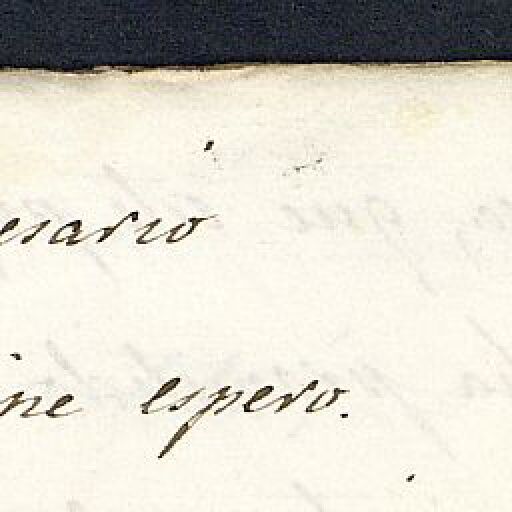 esario
ine espero.